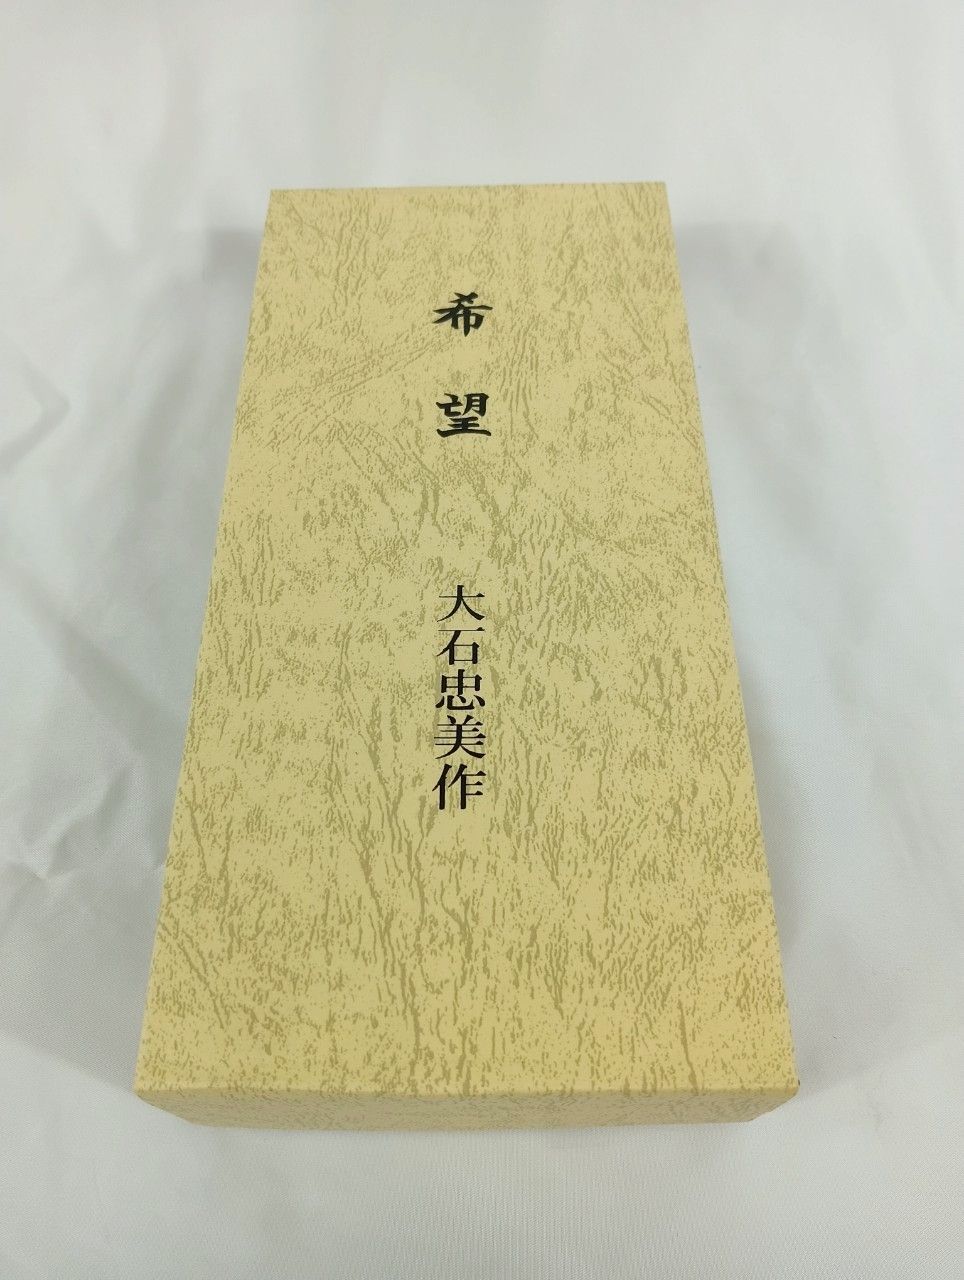 希望
大石忠美作